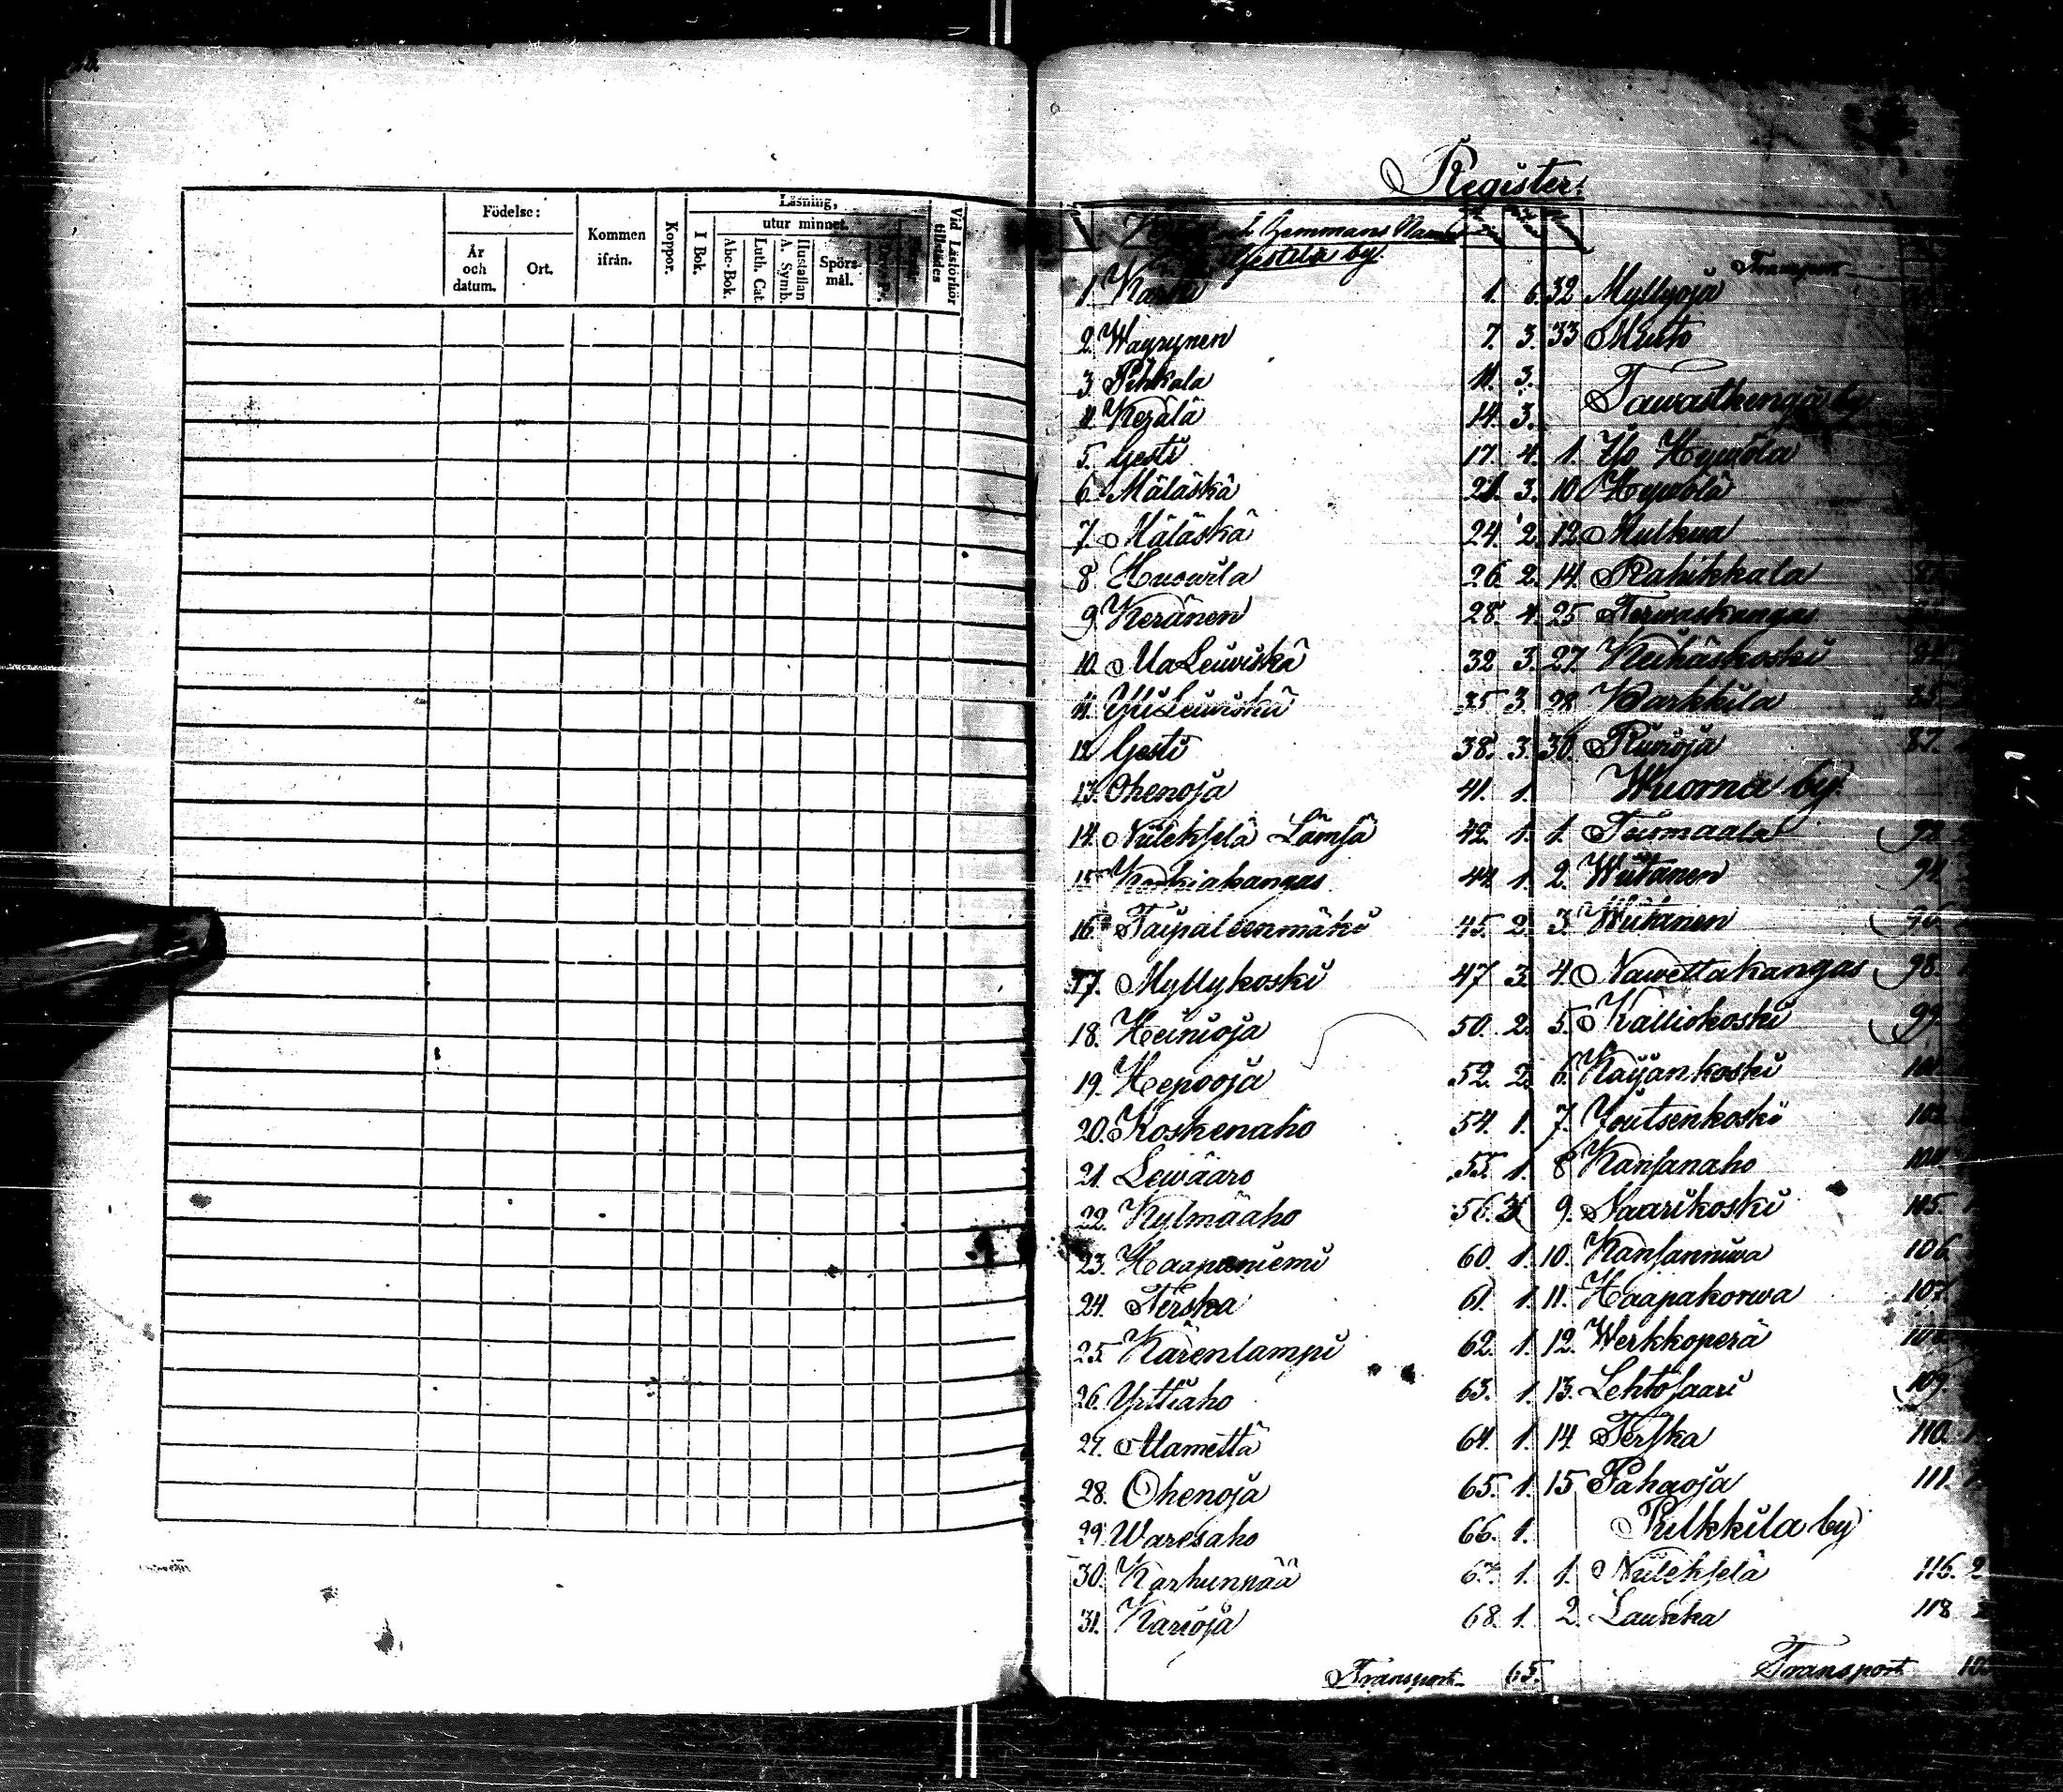 Födelse:
År
och
datum.
Ort.
Kommen
ifrån.
Koppor.
Läsning,
I Bok.
utur minnet.
Abc-Bok.
Luth. Cat.
Hustaflan
A. Symb.
Spörs-
mål.
Vid Läsförhör
tillstädes
Register.
Hemmans
Gestilä by.
1. 1. 6.
2. Wäyrynen 7. 3.
3. Pihkala 11. 3.
4. Kerälä 14. 3.
5. Gesti 17. 4.
6. Mäläskä 21. 3.
7. Mäläskä 24. 2.
8. Huowila 26. 2.
9. Keränen 28. 4.
10. AlaLeiwiskä 32. 3.
11. YliLeiwiskä 35. 3.
12. Gesti 38. 3.
13. Ohenoja 41. 1.
14. Niilekselä Lämsä 42. 1.
15. Korkiakangas 44. 1.
16. Taipaleenmäki 45. 2.
17. Myllykoski 47. 3.
18. Heinioja 50. 2.
19. Hepooja 52. 2.
20. Koskenaho 54. 1.
21. Lewääro 55. 1.
22. Kylmäaho 56.
23. Haapaniemi 60. 1.
24. Terska 61. 1.
25. Kärenlampi 62. 1.
26. Yrttiaho 63. 1.
27. Alamettä 64. 1.
28. Ohenoja 65. 1.
29. Waresaho 66. 1.
30. Karhunpää 67. 1.
31. Karioja 68. 1.
Transport 65.
Transport
32 Myllyoja
33 Muto
Tawastkenga by
1. Yso Hywölä
10. Hywölä
12. Mulkua
14. Rahikkala
25 Terwaskangas
27. Keihäskoski
28 Karkkila 85.
30. Riuioja 87.
Wuorna by.
1. Teismaala 92.
2. Wiitanen 94.
3. Wiitanen 96.
4. Nawettakangas 98.
5. Kalliokoski 99.
6. Käyänkoski 101
7. Joutsenkoski 102
8 Kansanaho 104
9. Saarikoski 105.
10. Kansanniwa 106
11. Haapakorwa 107
12. Werkkoperä 108
13. Lehtosaari 109.
14. Terska 110.
15 Pahaoja 111.
Pulkkila by
1. Niilekselä 116. 2
2. Laukka 118
Transport